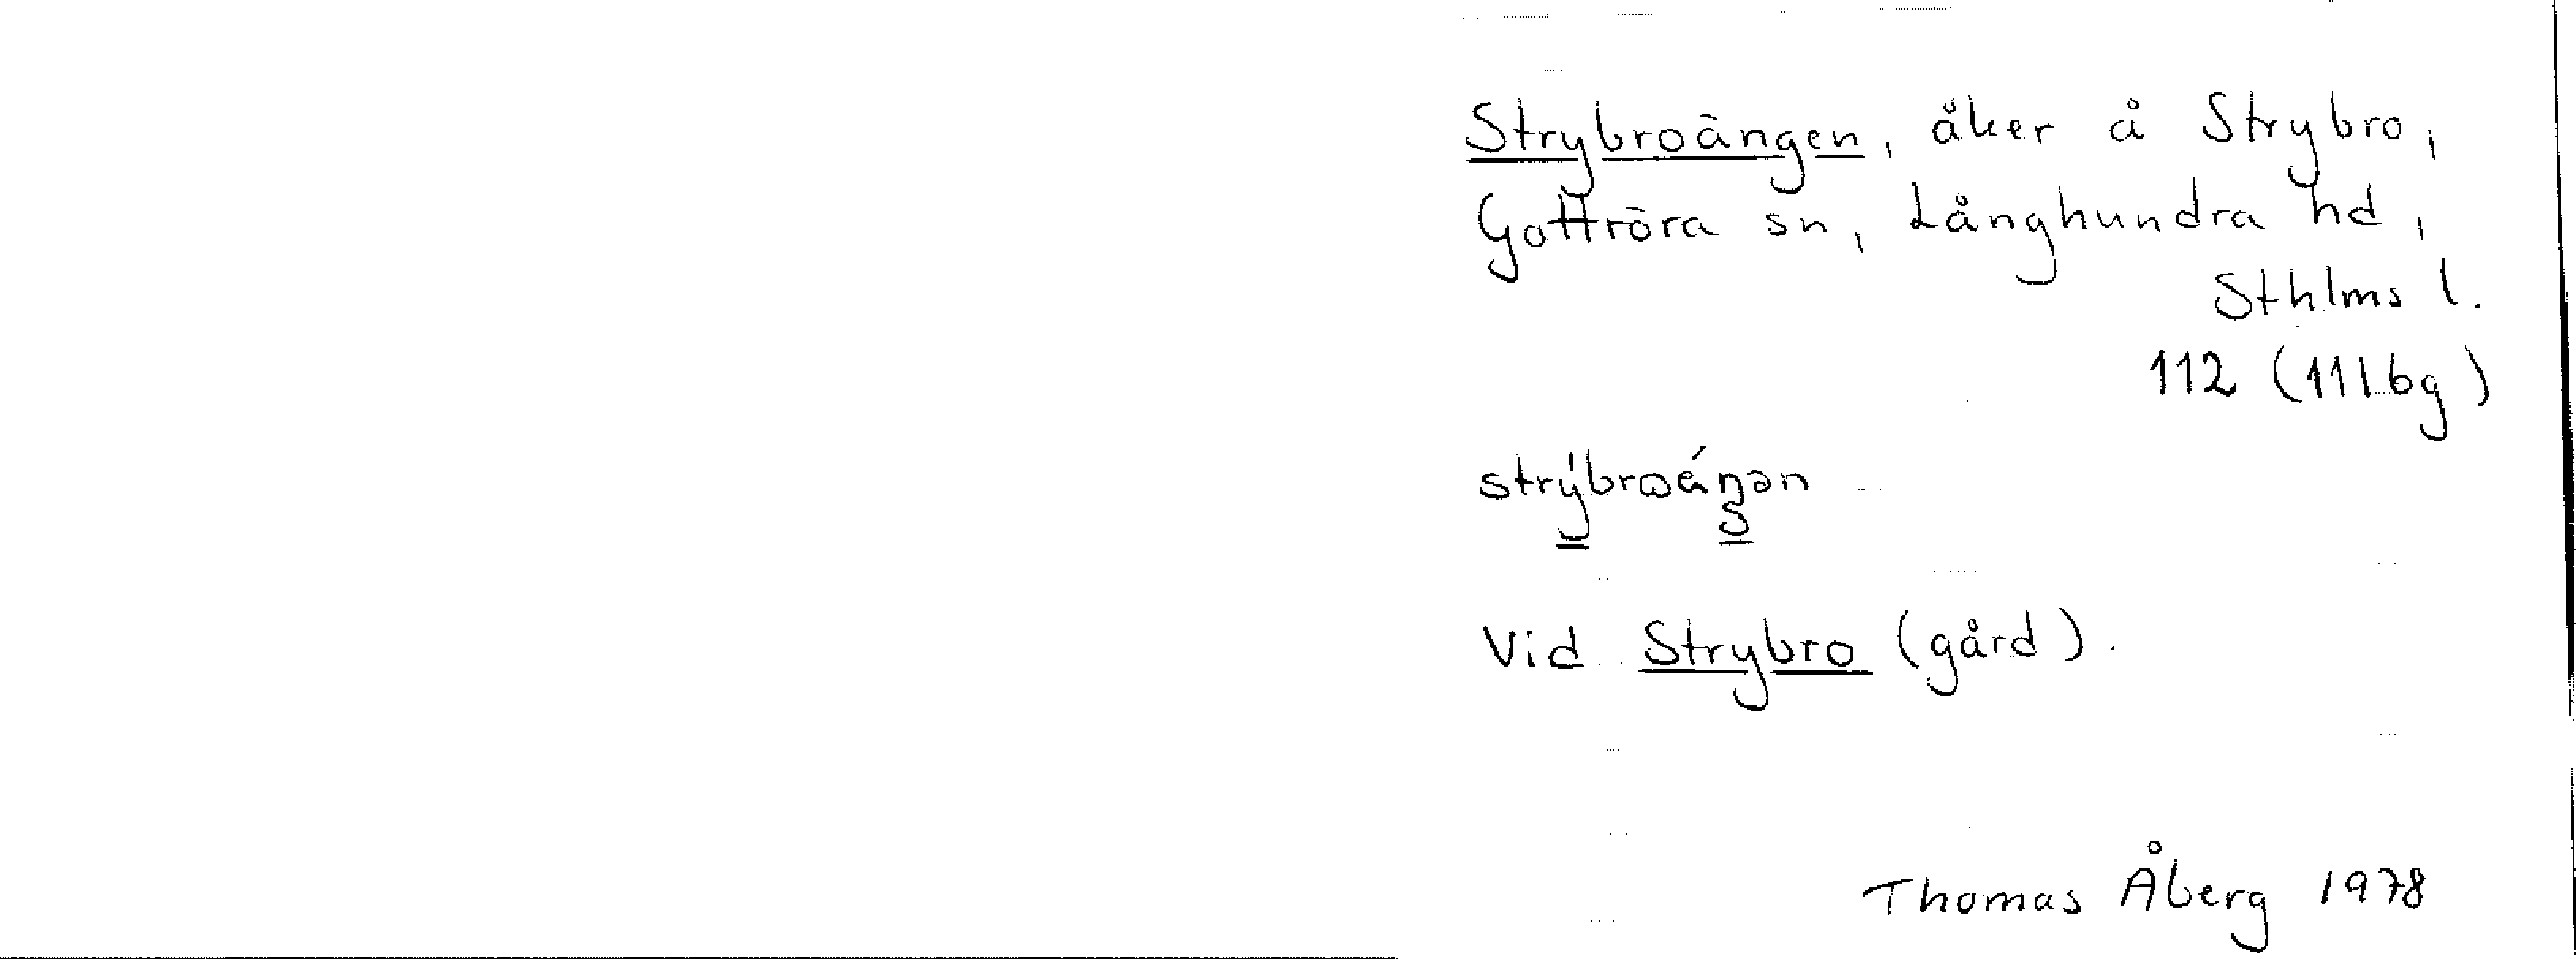 Strybroängen, åker å Strybro,
Gottröra sn, Långhundra hd,
Sthlms l.
112 (11I6g)
Vid Strybro (gård).
Thomas Åberg 1978